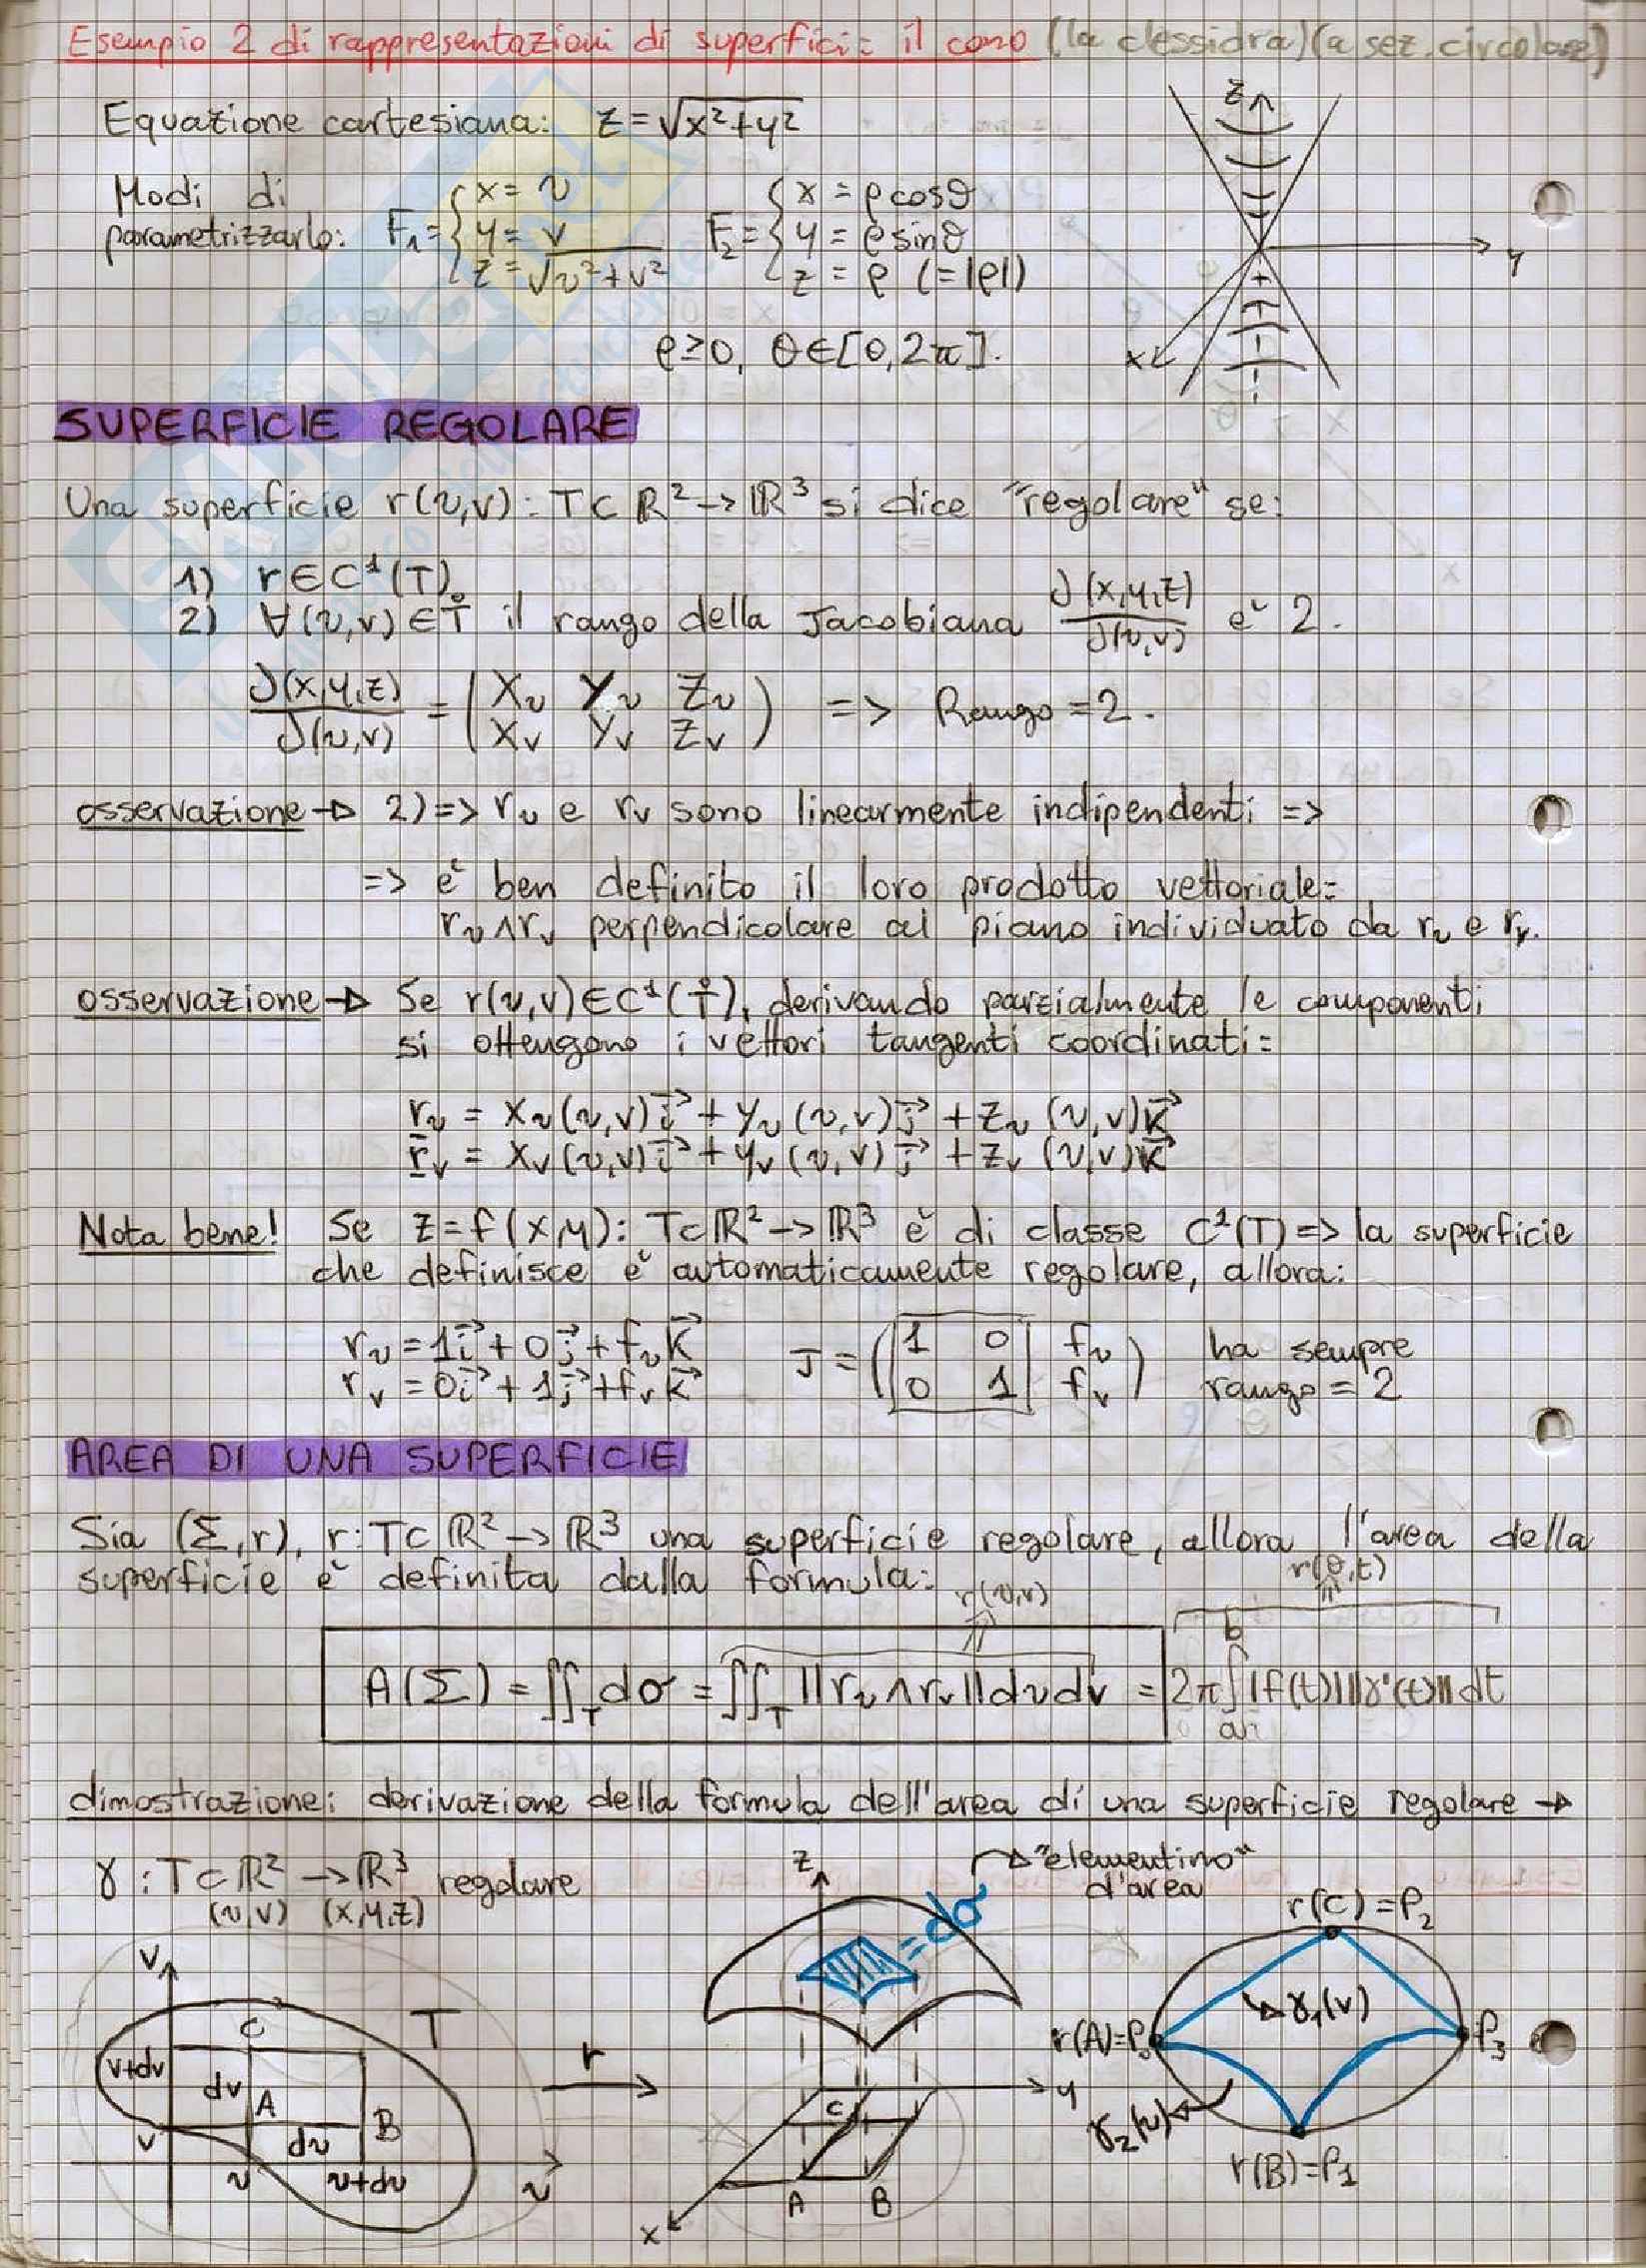 Esempio 2 di rappresentazioni di superfici: il cono (la clessidra) (a sez. circolare)
Equazione cartesiana: z = √(x²+y²)
Modi di parametrizzarlo: F₁ = { x = u, y = v, z = √(u²+v²) F₂ = { x = ρcosθ, y = ρsinθ, z = ρ (=|ρ|)
ρ≥0, θ∈[0,2π].
z
y
x
SUPERFICIE REGOLARE
Una superficie r(u,v): T⊂ℝ²→ℝ³ si dice "regolare" se:
1) r∈C¹(T)
2) ∀(u,v)∈T̊ il rango della Jacobiana ∂(x,y,z)/∂(u,v) è 2.
∂(x,y,z)/∂(u,v) = (x_u y_u z_u / x_v y_v z_v) => Rango = 2.
osservazione → 2) => r_u e r_v sono linearmente indipendenti =>
=> è ben definito il loro prodotto vettoriale:
r_u ∧ r_v perpendicolare al piano individuato da r_u e r_v.
osservazione → Se r(u,v)∈C¹(T̊), derivando parzialmente le componenti
si ottengono i vettori tangenti coordinati:
r_u = x_u(u,v)i⃗ + y_u(u,v)j⃗ + z_u(u,v)k⃗
r_v = x_v(u,v)i⃗ + y_v(u,v)j⃗ + z_v(u,v)k⃗
Nota bene! Se z=f(x,y): T⊂ℝ²→ℝ³ è di classe C¹(T) => la superficie
che definisce è automaticamente regolare, allora:
r_u = 1i⃗ + 0j⃗ + f_u k⃗ J = (1 0 f_u / 0 1 f_v) ha sempre
r_v = 0i⃗ + 1j⃗ + f_v k⃗ rango = 2
AREA DI UNA SUPERFICIE
Sia (Σ,r), r: T⊂ℝ²→ℝ³ una superficie regolare, allora l'area della
superficie è definita dalla formula:
r(u,v) r(θ,t)
A(Σ) = ∬_T dσ = ∬_T ||r_u ∧ r_v|| du dv = 2π ∫_a^b |f(t)| ||γ'(t)|| dt
dimostrazione: derivazione della formula dell'area di una superficie regolare →
γ: T⊂ℝ² → ℝ³ regolare
(u,v) (x,y,z)
"elementino"
d'area
v
T
C
v+dv
dv
A
B
v
du
u
u+du
u
r
z
= dσ
y
C
A
B
x
r(C)=P₂
γ₁(v)
r(A)=P₀
P₃
γ₂(u)
r(B)=P₁